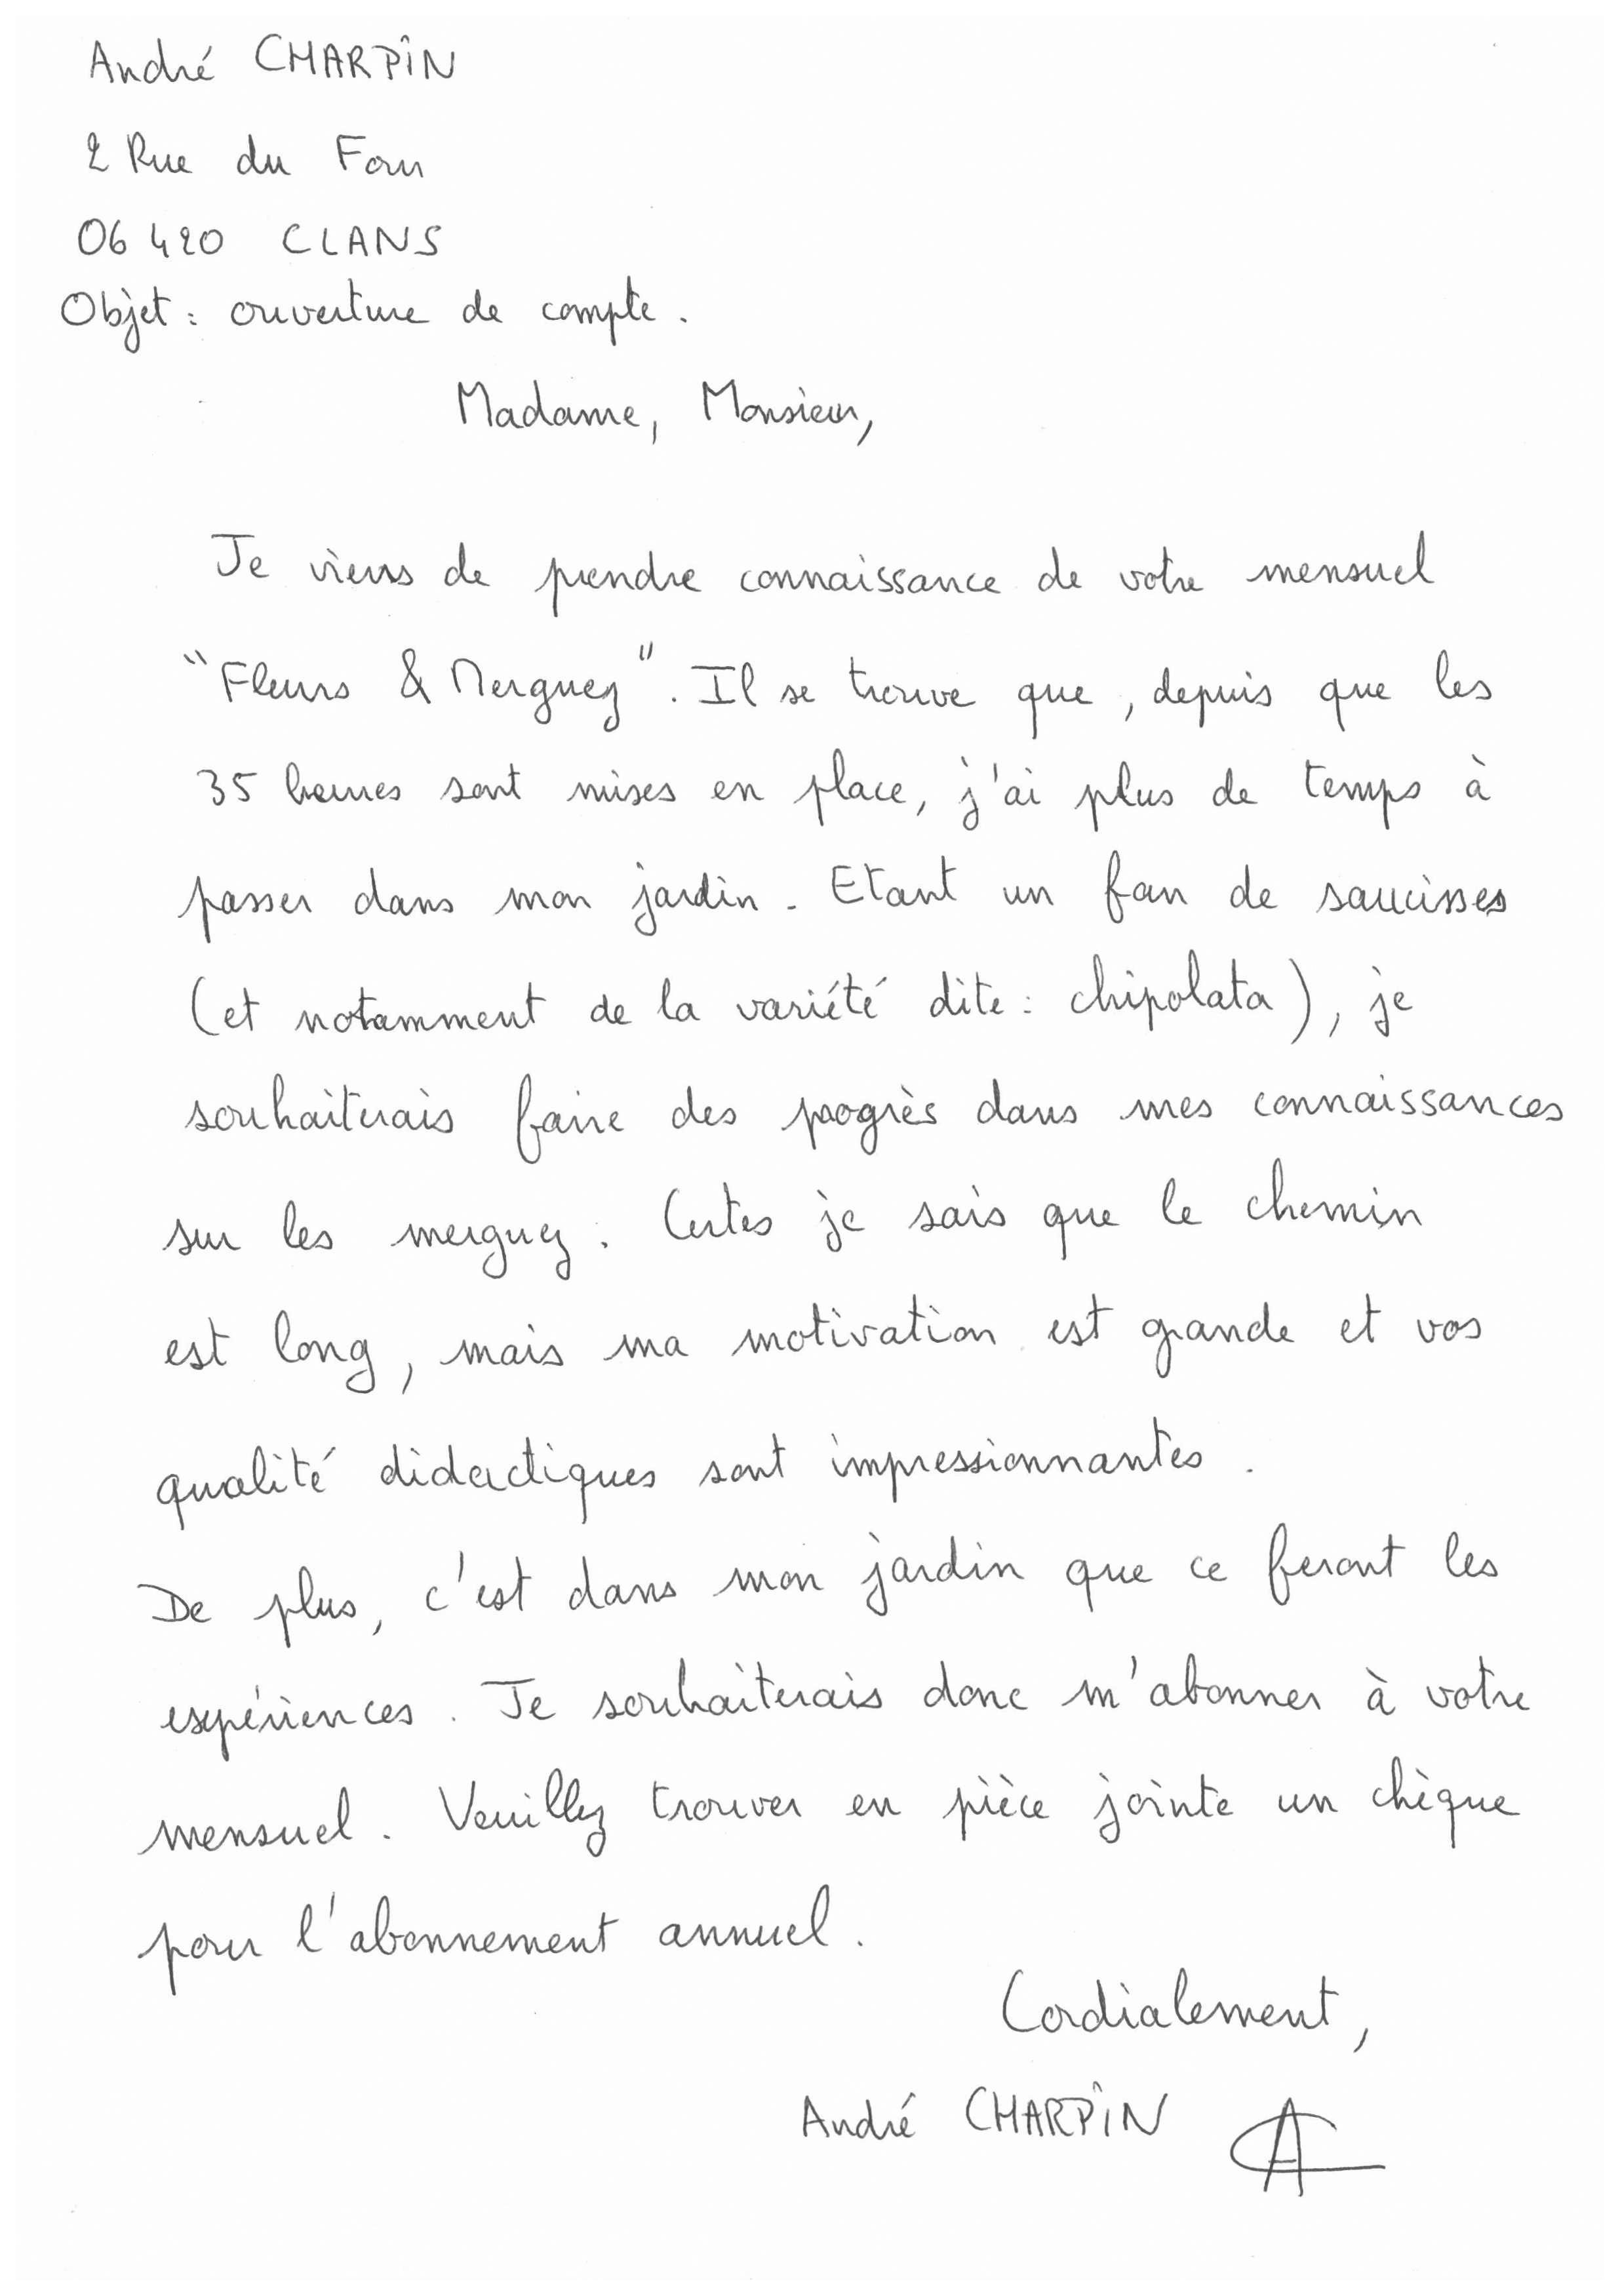 André CHARPIN
2 Rue du Four
06420 CLANS
Objet : ouverture de compte.
Madame, Monsieur,
Je viens de prendre connaissance de votre mensuel
"Fleurs & Merguez". Il se trouve que, depuis que les
35 heures sont mises en place, j'ai plus de temps à
passer dans mon jardin. Etant un fan de saucisses
(et notamment de la variété dite : chipolata), je
souhaiterais faire des progrès dans mes connaissances
sur les merguez. Certes je sais que le chemin
est long, mais ma motivation est grande et vos
qualité didactiques sont impressionnantes.
De plus, c'est dans mon jardin que ce feront les
expériences. Je souhaiterais donc m'abonner à votre
mensuel. Veuillez trouver en pièce jointe un chèque
pour l'abonnement annuel.
Cordialement,
André CHARPIN